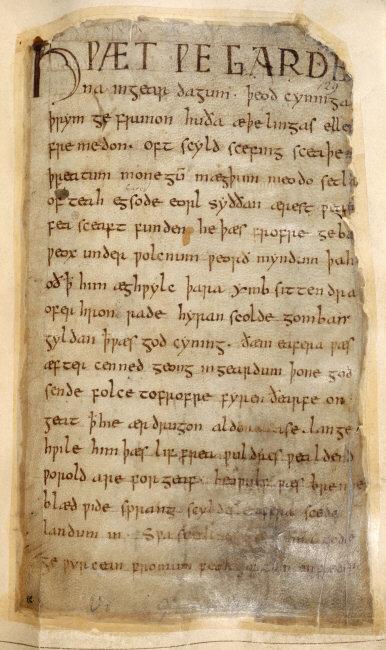 HǷÆT ǷE GARDE
129
na ingear dagum. þeod cyninga
þrym ge frunon huða æþelingas elle
fremedon. oft scyld scefing sceaþe
þreatum monegū mægþum meodo setla
of teah egsode eorl syððan ærest ƿear
fea sceaft funden he þæs frofre geba
ƿeox under ƿolcnum ƿeorð myndum þah
oðꝥ him æghƿylc þara ymb sittendra
ofer hron rade hyran scolde gomban
gyldan ꝥ ƿæs god cyning. ðæm eafera ƿæs
æfter cenned geong ingeardum þone god
sende folce tofrofre fyren ðearfe on
geat ꝥ hie ær drugon aldor ase. lange
hƿile him þæs lif frea ƿuldres ƿealdend
ƿorold are for geaf. beoƿulf ƿæs breme
blæd ƿide sprang scyldes eafera scede
landum in. Sƿa sceal guma gode
ge ƿyrcean fromum feoh giftum